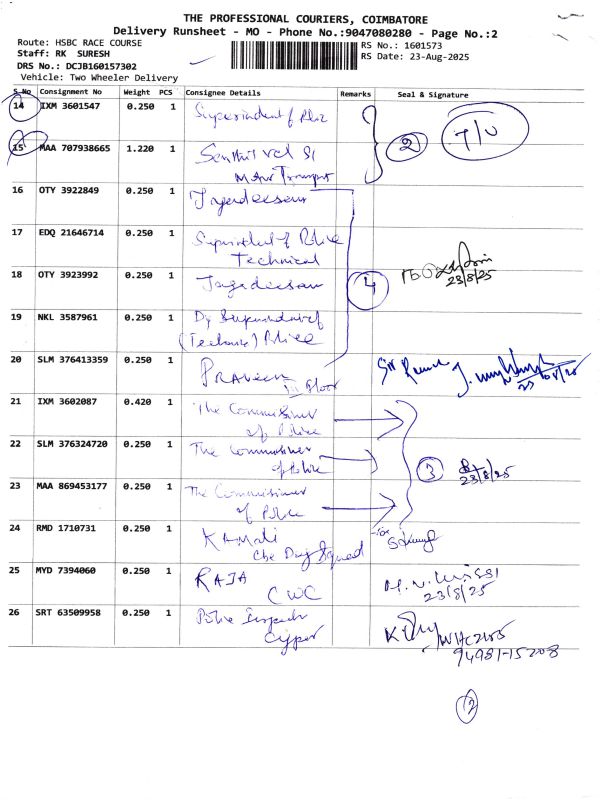 THE PROFESSIONAL COURIERS, COIMBATORE
Delivery Runsheet - MO - Phone No.:9047080280 - Page No.:2
Route: HSBC RACE COURSE
RS No.: 1601573
Staff: RK SURESH
RS Date: 23-Aug-2025
DRS No.: DCJB160157302
Vehicle: Two Wheeler Delivery
S No Consignment No Weight PCS Consignee Details Remarks Seal & Signature
14 IXM 3601547 0.250 1 Superintendent of Police
2 T/U
15 MAA 707938665 1.220 1 Senthil vel SI
Motor Transport
16 OTY 3922849 0.250 1 Jagadeesan
17 EDQ 21646714 0.250 1 Superintendent of Police
Technical
18 OTY 3923992 0.250 1 Jagadeesan
4
23/8/25
19 NKL 3587961 0.250 1 Dy Superintendent of
(Technical) Police
20 SLM 376413359 0.250 1 PRAVEEN
III Floor
21 IXM 3602087 0.420 1 The Commissioner
of Police
22 SLM 376324720 0.250 1 The Commissioner
of Police
3
23/8/25
23 MAA 869453177 0.250 1 The Commissioner
of Police
24 RMD 1710731 0.250 1 KAMALI
Cbe Dog Squad
25 MYD 7394060 0.250 1 RAJA
CWC
23/8/25
26 SRT 63509958 0.250 1 Police Inspector
94981-15208